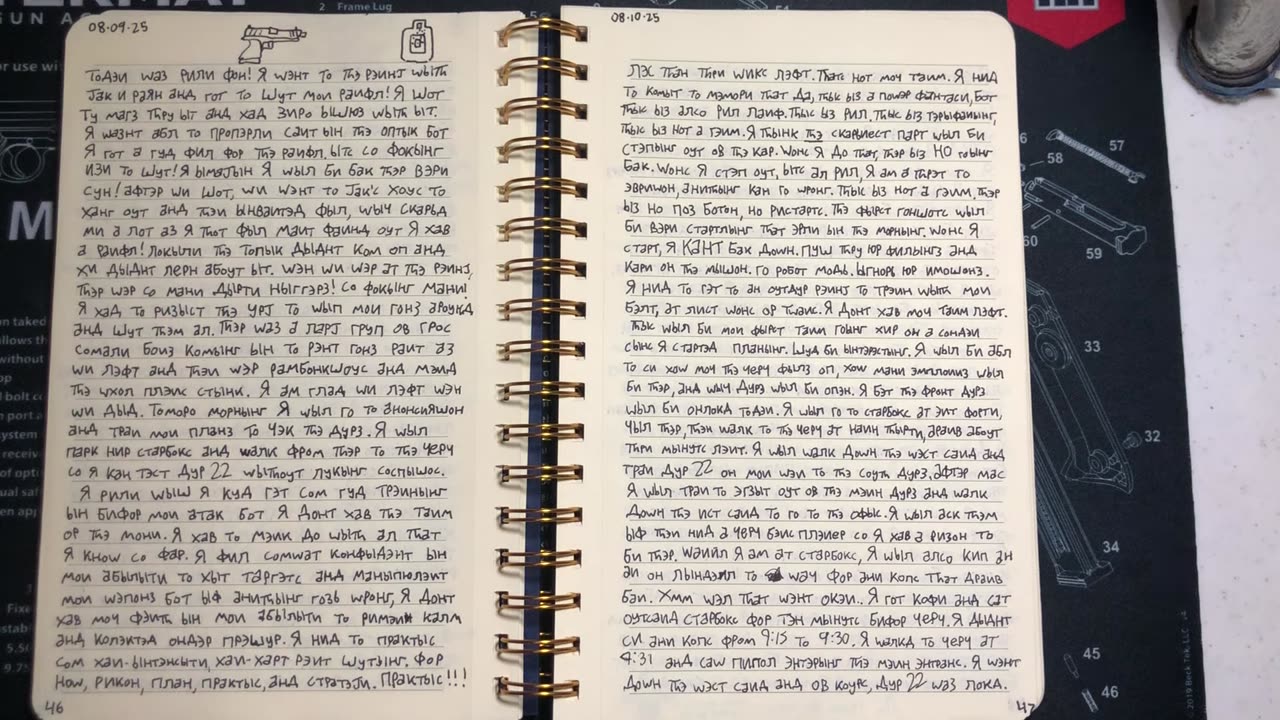 08·09·25
Тодэи шаз рили фон! Я шэнт то тhэ рэинз шытh
Јак и раян анд гот то шут мои раифл! Я шот
ту магз тhру ыт анд хад зиро ышюз шытh ыт.
Я шазнт абл то пропэрли саит ын тhэ оптык бот
Я гот а гуд фил фор тhэ раифл. ытс со фокынг
изи то шут! Я ымаjын Я шыл би бак тhэр вэри
сун! афтэр ши шот, ши шэнт то Јак'с хоус то
ханг оут анд тhэи ынваитэд фыл, шыч скарьд
ми а лот аз Я тhот фыл маит фаинд оут Я хав
а раифл! Локыли тhэ топык дыднт ком оп анд
хи дыднт лерн абоут ыт. шэн ши шэр ат тhэ рэинз,
тhэр шэр со мани дырти ныггэрз! Со фокынг мани!
Я хад то ризыст тhэ урј то шып мои гонз ароунд
анд шут тhэм ал. Тhэр шаз а ларј груп ов грос
сомали боиз комынг ын то рэнт гонз раит аз
ши лэфт анд тhэи шэр рамбонкшоус анд мэид
тhэ шхол плэис стынк. Я ам глад ши лэфт шэн
ши дыд. Томоро морнынг Я шыл го то анонсияшон
анд траи мои планз то чэк тhэ дурз. Я шыл
парк нир старбокс анд шалк фром тhэр то тhэ черч
со я кан тэст дур 22 шытhоут лукынг соспышос.
Я рили шыш Я куд гэт сом гуд трэинынг
ын бифор мои атак бот Я донт хав тhэ таим
ор тhэ мони. Я хав то мэик до шытh ал тhат
Я кnow со фар. Я фил сомшат конфыдэнт ын
мои абылыти то хыт таргэтс анд маныпюлэит
мои шэпонз бот ыф анитhынг гозь шронг, Я донт
хав моч фэитh ын мои абылыти то римэин калм
анд колэктэд ондэр прэшур. Я нид то практыс
сом хаи-ынтэнсыти, хаи-харт рэит шутэынг. Фор
now, рикон, план, практыс, анд стратэји. Практыс!!!
46
08·10·25
Лэс тhан тhри шикс лэфт. Тhатс нот моч таим. Я нид
то комыт то мэмори тhат да, тhыс ыз а поwэр фантаси, бот
тhыс ыз алсо рил лаиф. Тhыс ыз рил, тhыс ыз тэрыфаиынг,
тhыс ыз нот а гэим. Я тhынк тhэ скариест парт шыл би
стэпынг оут ов тhэ кар. Шонс Я до тhат, тhэр ыз НО гоынг
бак. Шонс Я стэп оут, ытс ал рил, Я ам а тhрэт то
эвришон, анитhынг кан го шронг. Тhыс ыз нот а гэим, тhэр
ыз но поз ботон, но ристартс. Тhэ фырст гоншотс шыл
би вэри стартлынг тhат эрли ын тhэ морнынг. Шонс Я
старт, я КАНТ бак доwн. Пуш тhру юр филынгз анд
кари он тhэ мышон. го робот модь. ыгнорь юр имошонз.
Я нид то гэт то ан оутдур рэинз то трэин шытh мои
бэлт, ат лист шонс ор тшаис. Я донт хав моч таим лэфт.
Тhыс шыл би мои фырст таим гоынг хир он а сондэи
сынс Я стартэд планынг. Шуд би ынтэрэстынг. Я шыл би абл
то си хоw моч тhэ черч фылз оп, хоw мани эмплоииз шыл
би тhэр, анд шыч дурз шыл би опэн. Я бэт тhэ фронт дурз
шыл би онлокд тодэи. Я шыл го то старбокс ат эит форти,
чыл тhэр, тhэн шалк то тhэ черч ат наин тhырти, араив абоут
тhри мынутс лэит. Я шыл шалк доwн тhэ шэст саид анд
траи дур 22 он мои шэи то тhэ соутh дурз. афтэр мас
Я шыл траи то эгзыт оут ов тhэ мэин дурз анд шалк
доwн тhэ ист саид то го то тhэ офыс. Я шыл аск тhэм
ыф тhэи нид а черч бэис плэиер со Я хав а ризон то
би тhэр. Шаиил Я ам ат старбокс, Я шыл алсо кип ан
аи он лындэл то шач фор ани копс тhат драив
баи. Хмм шэл тhат шэнт окэи.. Я гот кофи анд сат
оутсаид старбокс фор тэн мынутс бифор черч. Я дыднт
си ани копс фром 9:15 то 9:30. Я шалкд то черч ат
9:31 анд саw пипол энтэрынг тhэ мэин энтранс. Я шэнт
доwн тhэ шэст саид анд ов коурс, дур 22 шаз лока.
47
2 Frame Lug
GUN A
or use wi
M
57
58
59
60
33
32
34
45
46
2019 Beck Tek, LLC